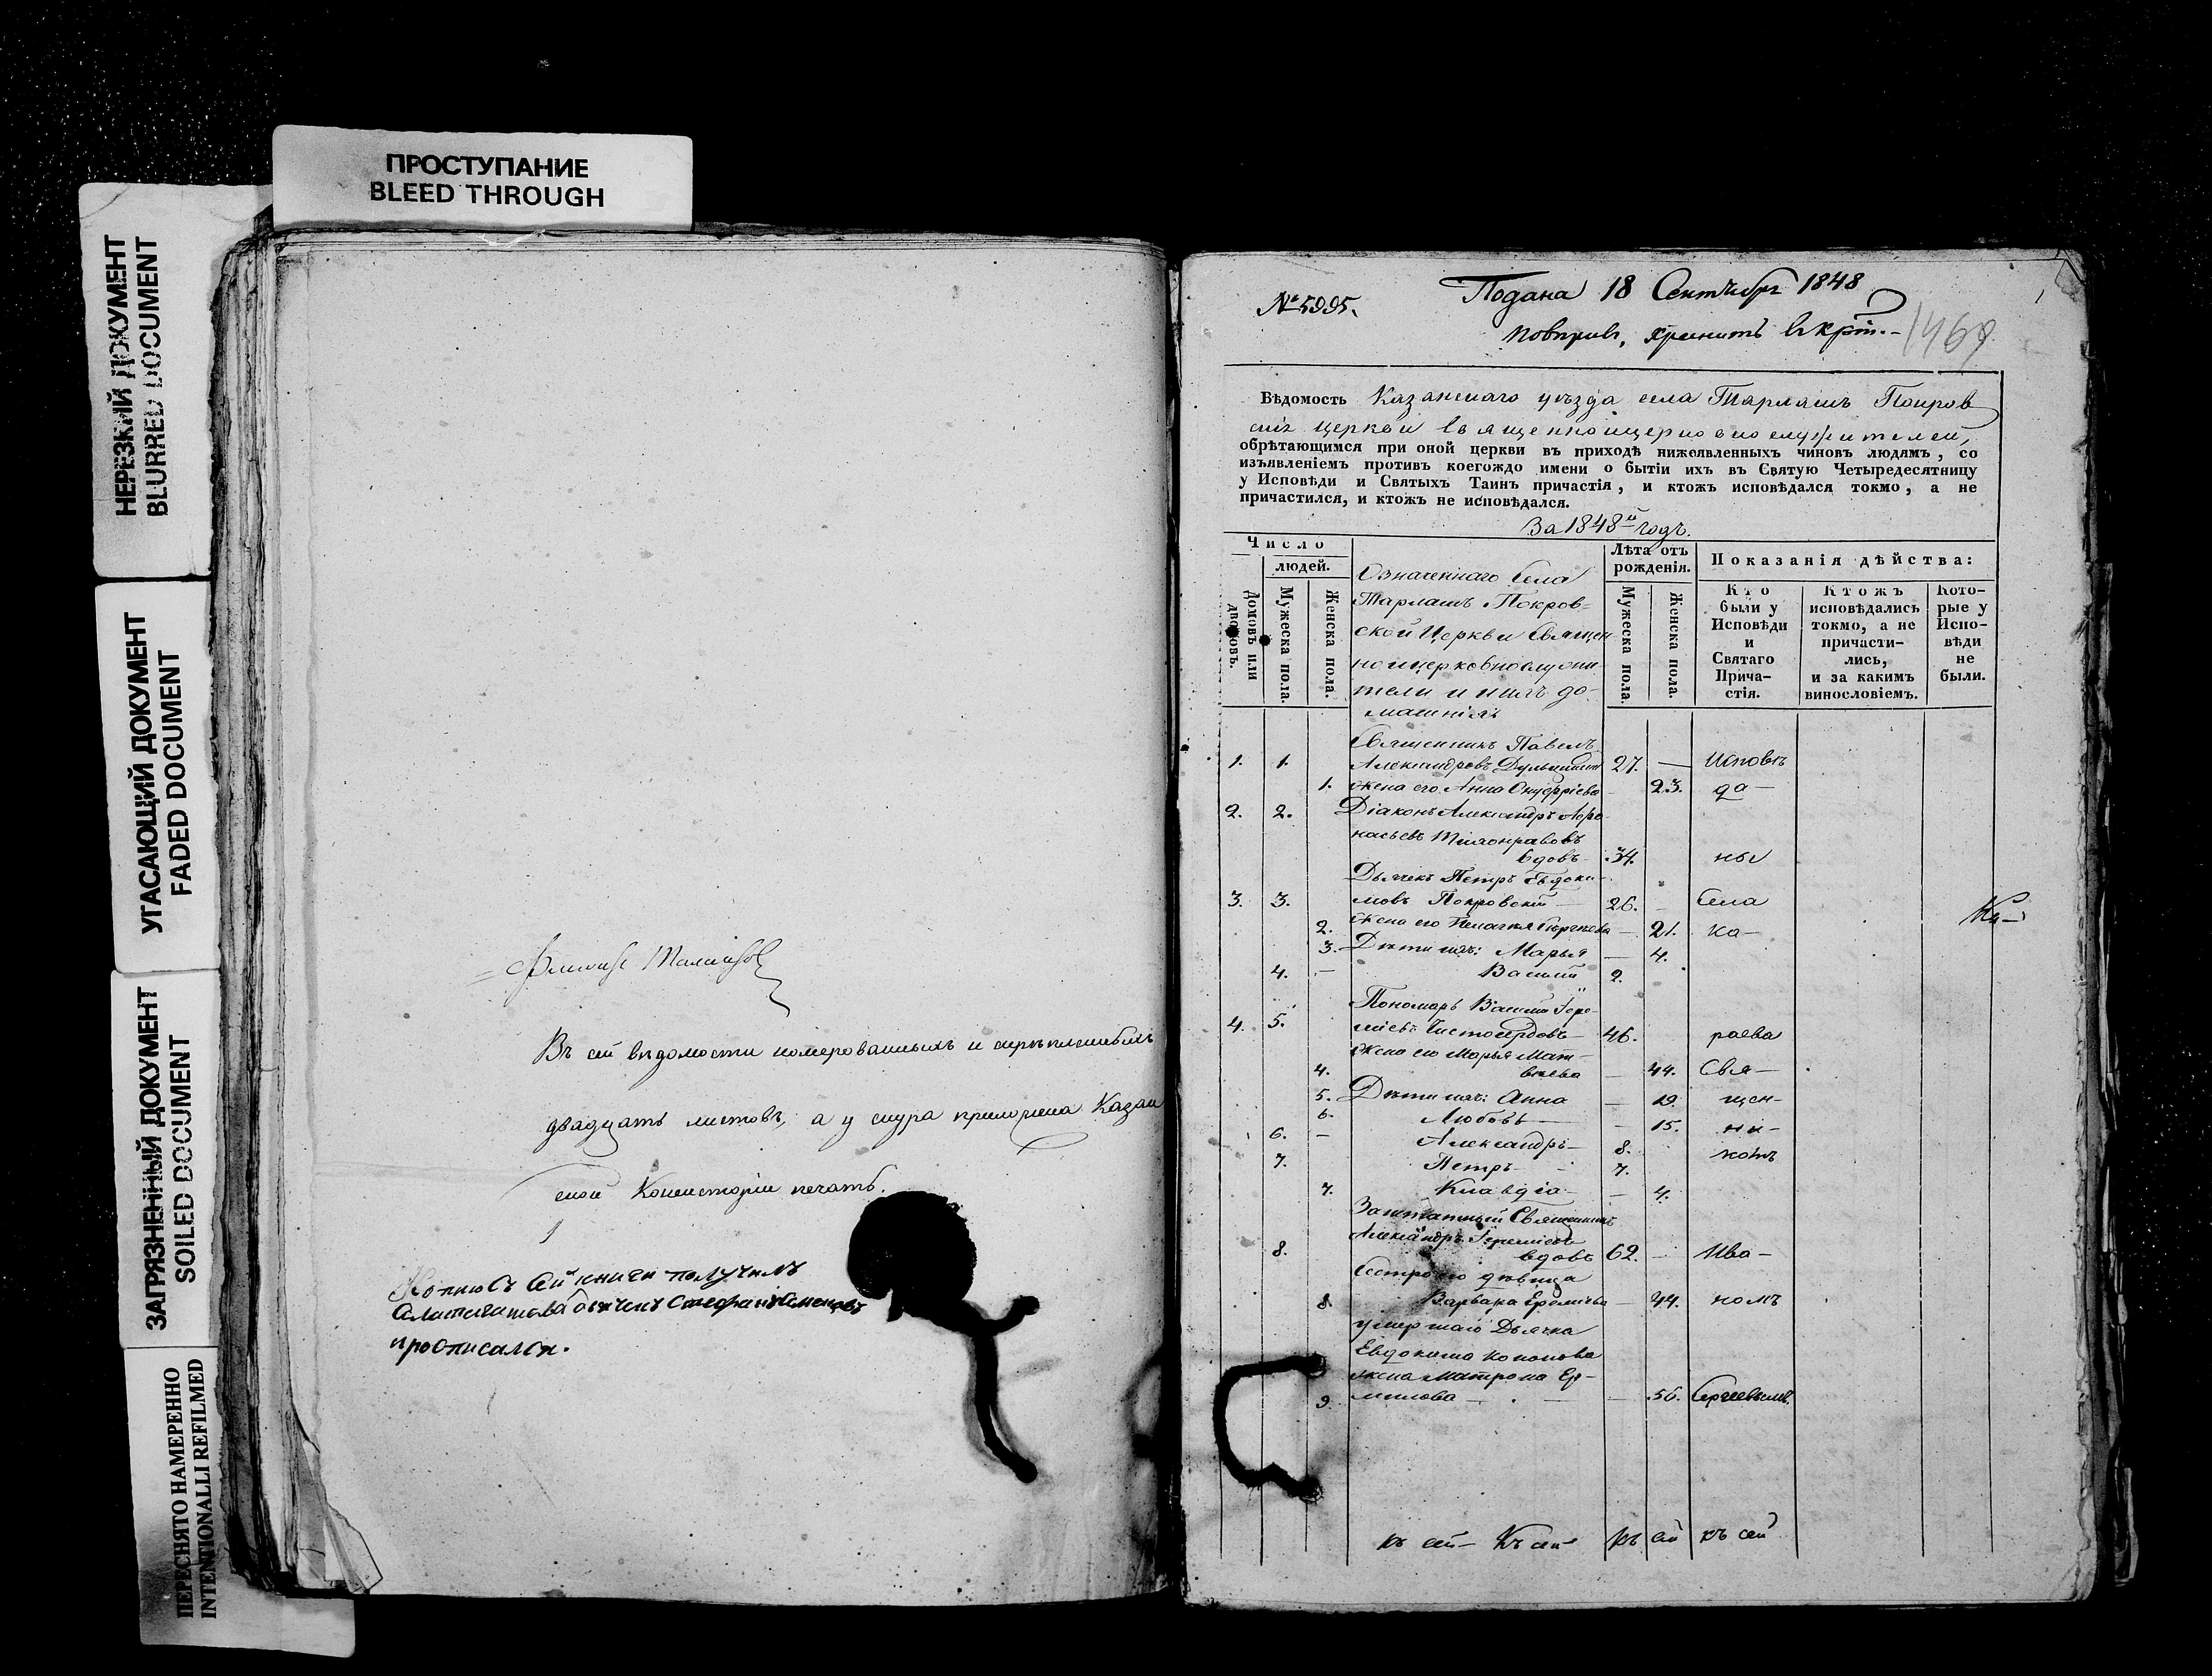 ПРОСТУПАНИЕ
BLEED THROUGH
НЕРЕЗКИЙ ДОКУМЕНТ
BLURRED DOCUMENT
УГАСАЮЩИЙ ДОКУМЕНТ
FADED DOCUMENT
ЗАГРЯЗНЕННЫЙ ДОКУМЕНТ
SOILED DOCUMENT
ПЕРЕСНЯТО НАМЕРЕННО
INTENTIONALLI REFILMED
Въ сей вѣдомости номерованныхъ и скрѣпленныхъ
двадцать листовъ, а у снура приложена Казан
ской Консисторіи печать.
Копию съ сей книги получилъ
дьячекъ Стефанъ Семеновъ
№ 5995.
Подана 18 Сентября 1848
хранить
1469
Вѣдомость Казанскаго уѣзда села Тарлашъ Покров
скіч церкви Священноцерковнослужителей,
обрѣтающимся при оной церкви въ приходѣ нижеявленныхъ чиновъ людямъ, со
изъявленіемъ противъ коегождо имени о бытіи ихъ въ Святую Четыредесятницу
у Исповѣди и Святыхъ Таинъ причастія, и ктожъ исповѣдался токмо, а не
причастился, и ктожъ не исповѣдался.
За 1848й годъ.
Число
людей.
Домовъ или дворовъ.
Мужеска пола.
Женска пола.
Означеннаго Села
Тарлашъ Покров=
ской Церкви Священ
ноцерковнослужи
тели и ихъ до-
машнія
Лѣта отъ
рожденія.
Мужеска пола.
Женска пола.
Показанія дѣйства:
Кто
были у
Исповѣди
и
Святаго
Прича-
стія.
Ктожъ
исповѣдались
токмо, а не
причасти-
лись,
и за какимъ
винословіемъ.
Кото-
рые у
Испо-
вѣди
не
были.
Священникъ Павелъ
1. 1. Александровъ 27. — Исповѣ
1. жена его Анна Онуфріева — 23. да—
2. 2. Діаконъ Александръ Афо
насьевъ
вдовъ 34. ны
Дьячекъ Петръ Евдоки-
3. 3. мовъ Покровскій 26. Села
2. жена его Пелагея — 21. Ка—
3. Дѣти ихъ: Марья — 4.
4. — Василій 2.
Пономарь Василій Іере-
4. 5. міевъ Чистосердовъ 46. раева
жена его Марья Мат-
4. вѣева — 44. Свя—
5. Дѣти ихъ: Анна — 19. щен-
6. Любовь — 15. ни-
6. — Александръ 8. комъ
7. Петръ 7.
7. Клавдіа — 4.
Заштатный Священникъ
Александръ Іереміевъ
8. вдовъ 62. — Ива—
Сестра его дѣвица
8. Варвара Ереміева — 44. номъ
умершаго Дьячка
Евдокима Кононова
жена Матрона Ер-
9. милова — 56. Сергіевымъ.
къ сей Къ сей къ сей къ сей